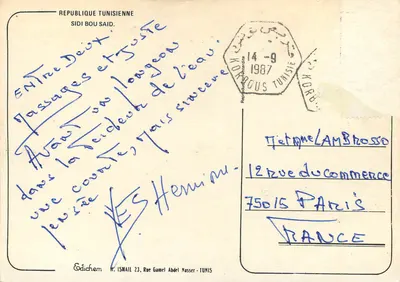 REPUBLIQUE TUNISIENNE
SIDI BOU SAID.
ENTRE DEUX
Massages et juste
AVANT un plongeon
dans la tiédeur de l'eau:
une courte, Mais sincère
pensée
YES Hermine.
قربص تونس
14 -9
1987
KORBOUS TUNISIE
KORBOUS
Mer et Mme LAMBROSSO
12 rue du commerce
75015 PARIS
FRANCE
Edichem
H. ISMAIL 23, Rue Gamel Abdel Nasser - TUNIS